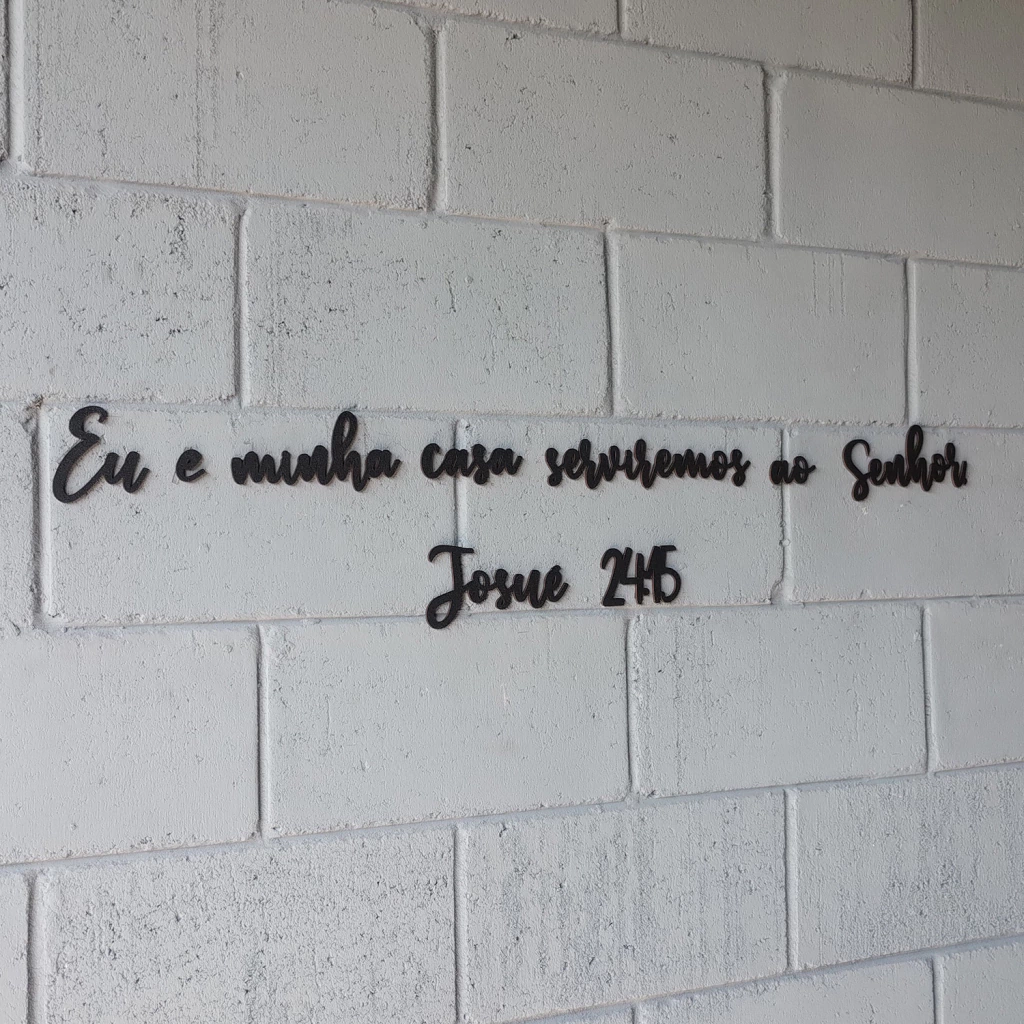 Eu e minha casa serviremos ao Senhor.
Josué 24:15